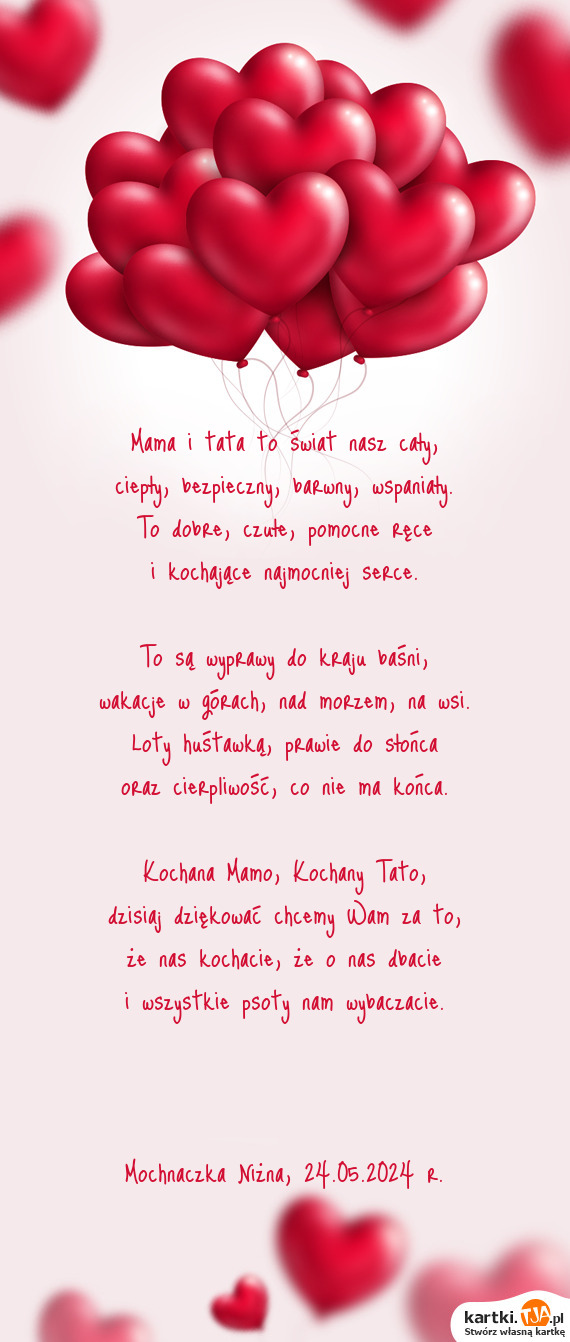 Mama i tata to świat nasz cały,
ciepły, bezpieczny, barwny, wspaniały.
To dobre, czułe, pomocne ręce
i kochające najmocniej serce.
To są wyprawy do kraju baśni,
wakacje w górach, nad morzem, na wsi.
Loty huśtawką, prawie do słońca
oraz cierpliwość, co nie ma końca.
Kochana Mamo, Kochany Tato,
dzisiaj dziękować chcemy Wam za to,
że nas kochacie, że o nas dbacie
i wszystkie psoty nam wybaczacie.
Mochnaczka Niżna, 24.05.2024 r.
kartki.TJA.pl
Stwórz własną kartkę